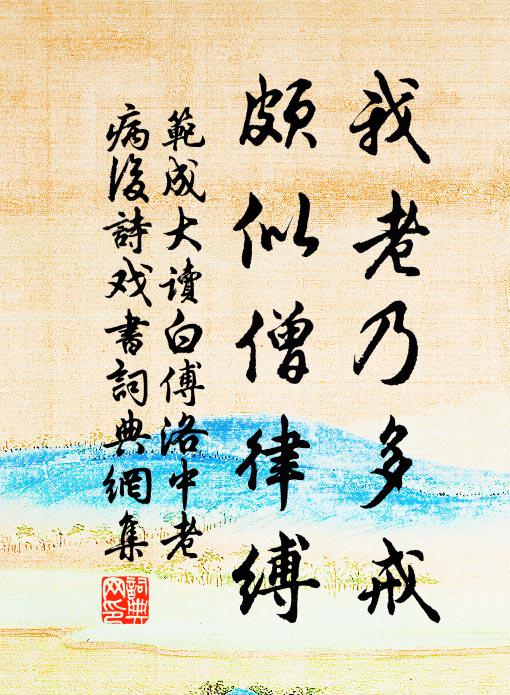 我老乃多戒
頗似僧律縛
範成大讀白傅洛中老
病後詩戏書詞典網集
詞典